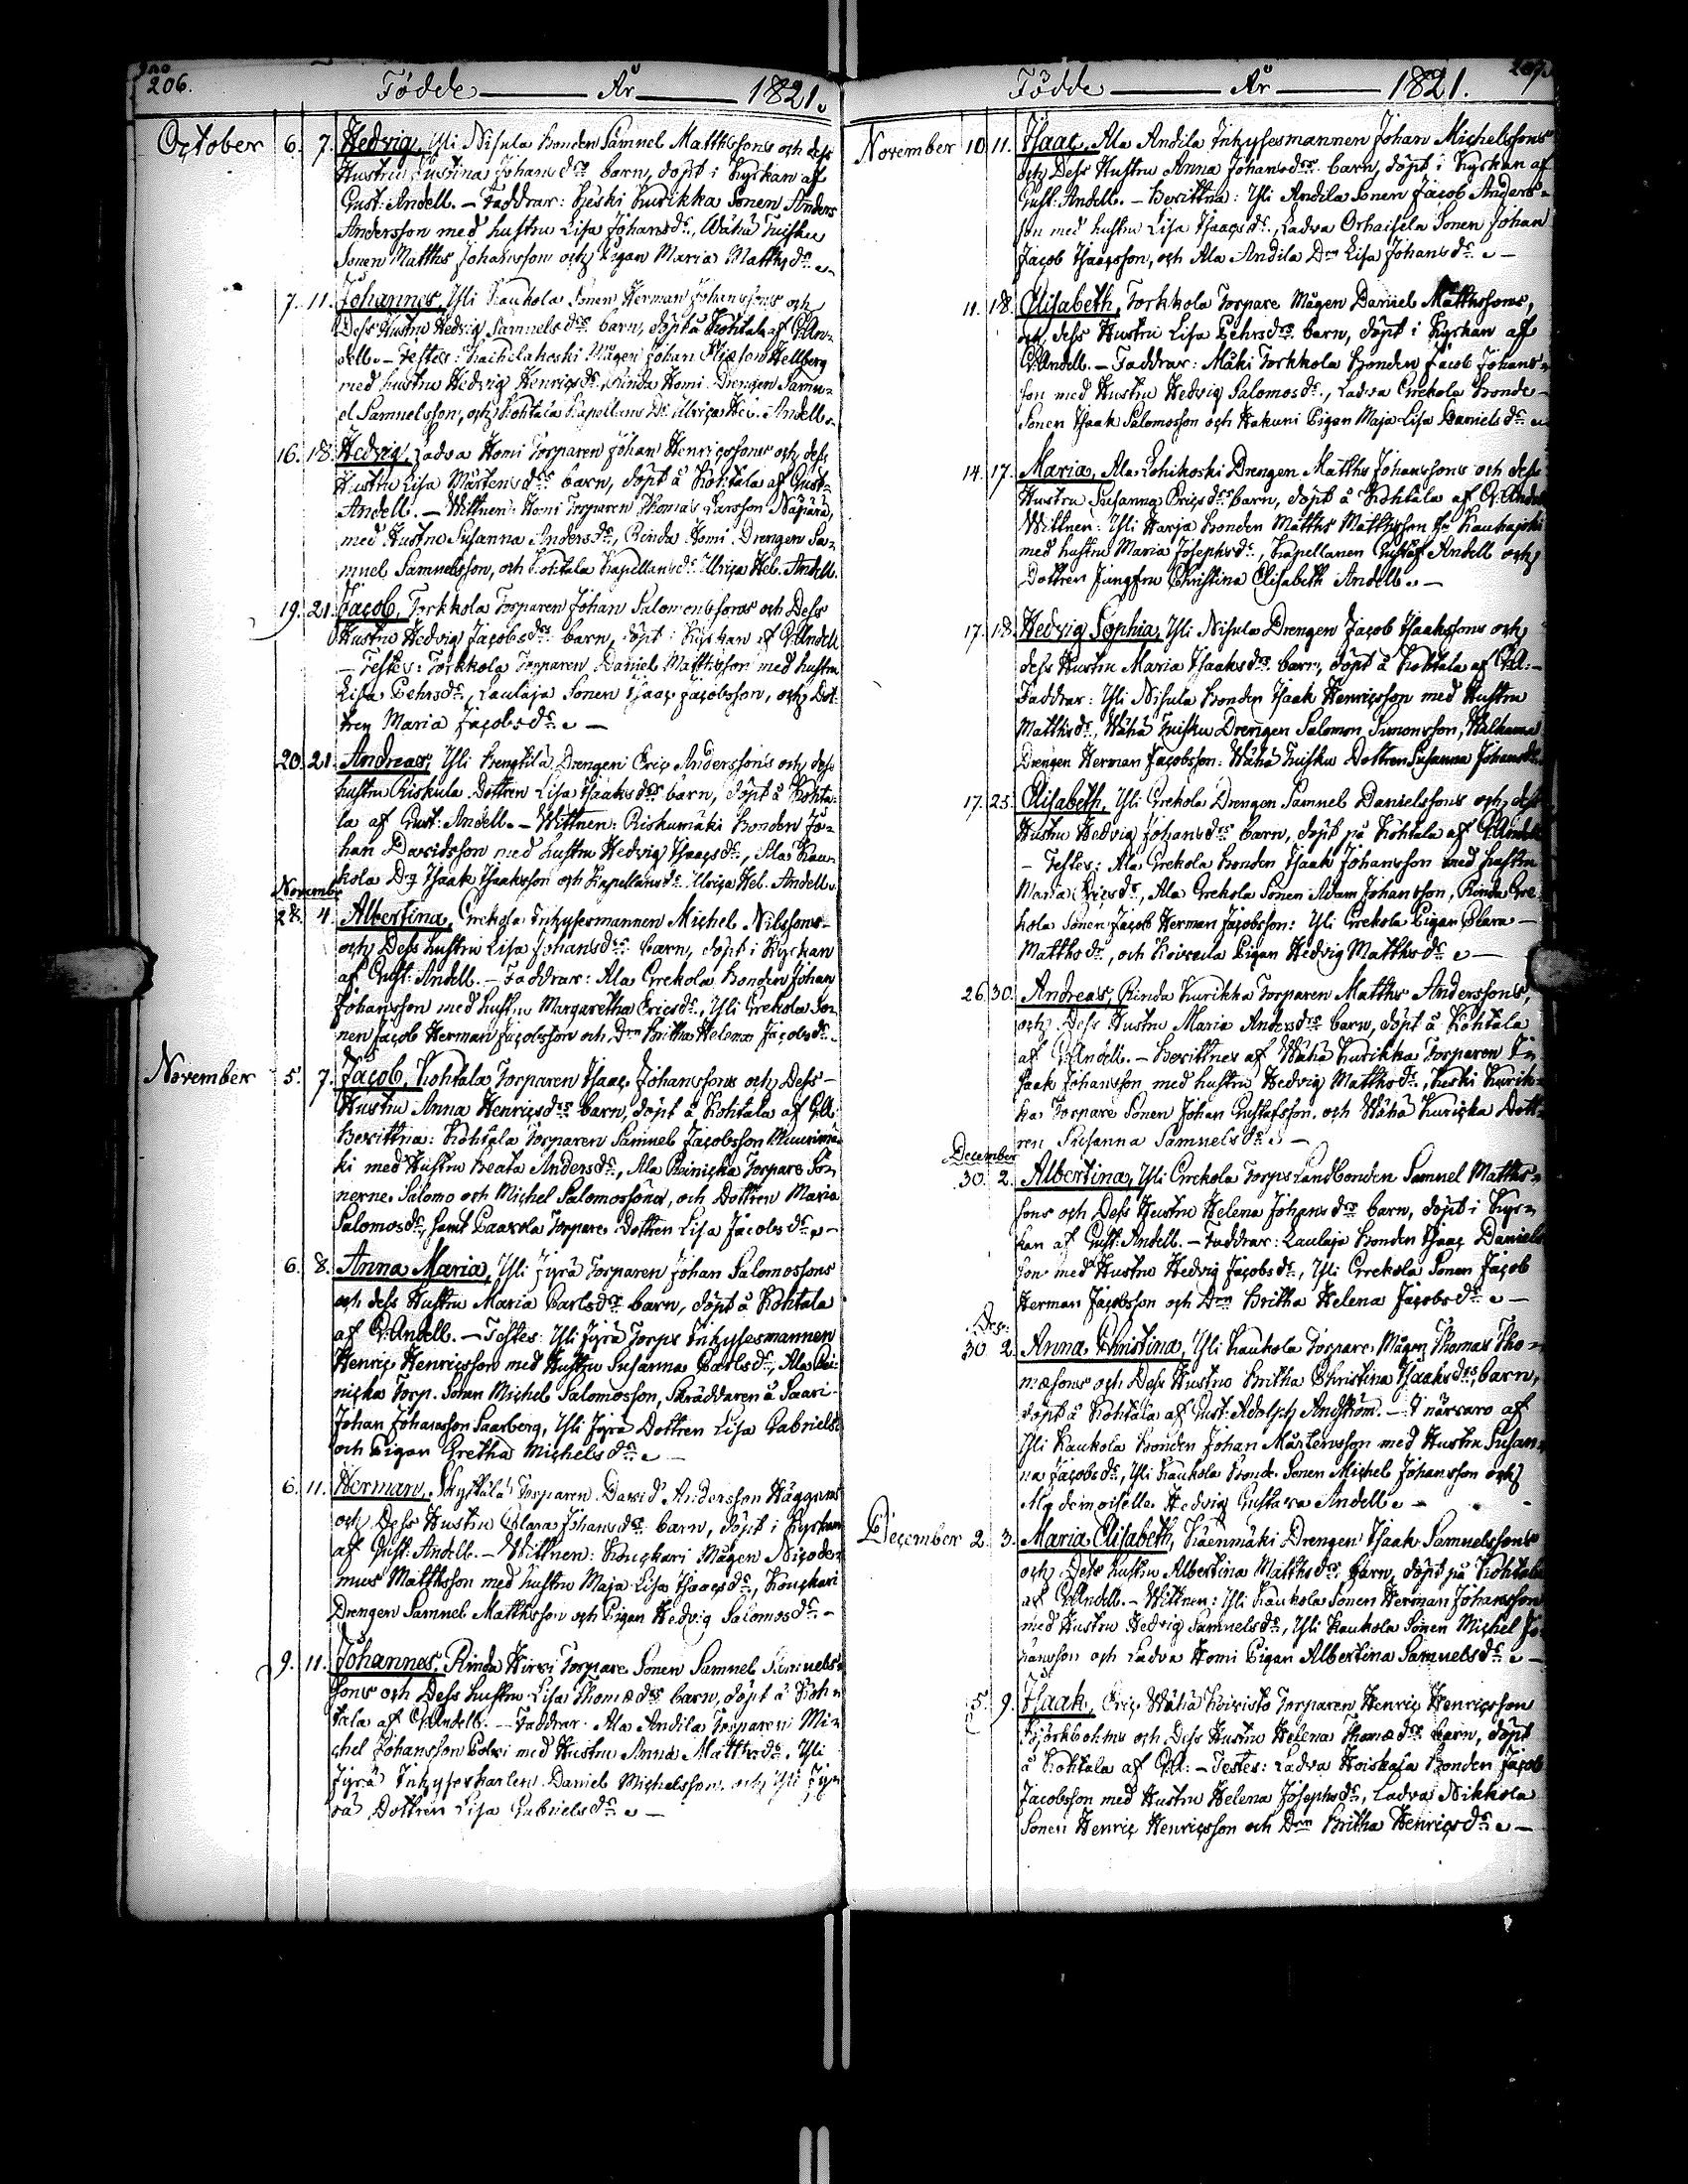 206.
Födde — År — 1821.
October 6. 7. Hedvig, Yli Nisula Bonden Samuel Matthssons och dess
Hustru Justina Johans drs barn, döpt i Kyrkan af
Gust: Andell. — Faddrar: Keski Kurikka Sonen Anders
Andersson med hustru Lisa Johansdr, Wähä Tuisku
Sonen Matths Johansson och Pigan Maria Matthsdr
7. 11. Johannes, Yli Kaukola Sonen Herman Johanssons och
Dess Hustru Hedvig Samuels drs barn, döpt å Kohtala af G: An-
dell. — Testes: Mågen Johan Hellberg
med hustru Hedvig Henricsdr, Rinda Homi Drengen Samu-
el Samuelsson, och Kohtala Kapellans Dr Ulrica Hel. Andell
16. 18. Hedvig, Ladva Homi Torparen Johan Henricssons och dess
Hustru Lisa Mårtens drs barn, döpt å Kohtala af Gust:
Andell. — Wittnen: Homi Torparen Thomas Larsson Näpärä,
med Hustru Susanna Andersdr, Rinda Homi Drengen Sa-
muel Samuelsson, och Kohtala Kapellansdr Ulrica Hel. Andell.
19. 21. Jacob, Torkkola Torparen Johan Salomonssons och Dess
Hustru Hedvig Jacobs drs barn, döpt i Kyrkan af G: Andell
— Testes: Torkkola Torparen Daniel Matthsson med hustru
Lisa Pehrsdr, Laulaja Sonen Isaac Jacobsson, och Dot-
tren Maria Jacobsdr —
20. 21. Andreas, Yli Drengen Eric Anderssons och dess
hustru Riskula Dottren Lisa Isaaks drs barn, döpt å Kohta-
la af Gust: Andell. — Wittnen: Riskumäki Bonden Jo-
han Davidsson med hustru Hedvig Isaacsdr, Ala Kau-
kola Dg Isaak Isaaksson och Kapellansdr Ulrica Hel. Andell
November
28. 4. Albertina, Crekola Inhysesmannen Michel Nilssons
och Dess hustru Lisa Johansdrs barn, döpt i Kyrkan
af Gust: Andell. — Faddrar: Ala Crekola Bonden Johan
Johansson med hustru Margaretha Ericsdr, Yli Crekola So-
nen Jacob Herman Jacobsson och Drn Britha Helena Jacobsdr
November 5. 7. Jacob, Kohtala Torparen Isaac Johanssons och Dess
Hustru Anna Henricsdrs barn, döpt å Kohtala af G: A:
Bevittna: Kohtala Torparen Samuel Jacobsson Muurimä-
ki med Hustru Beata Andersdr, Ala Reinicka Torpare So-
nerne Salomo och Michel Salomossöner, och Dottren Maria
Salomosdr, samt Paavola Torpare Dottren Lisa Jacobsdr —
6. 8. Anna Maria, Yli Jyrä Torparen Johan Salomossons
och dess Hustru Maria Carlsdrs barn, döpt å Kohtala
af G: Andell. — Testes: Yli Jyrä Torps Inhysesmannen
Henric Henricsson med Hustru Susanna Carlsdr, Ala Rei-
nicka Torp. Sonen Michel Salomosson, Skräddaren å Saari
Johan Johansson Saarberg, Yli Jyrä Dottren Lisa Gabrielsdr
och Pigan Gretha Michelsdr —
6. 11. Herman, Torparen David Andersson Häggroms
och Dess Hustru Clara Johansdrs barn, döpt i Kyrkan
af Gust: Andell. — Wittnen: Konckari Mågen Nicode-
mus Matthsson med hustru Maja Lisa Isaacsdr, Konckari
Drengen Samuel Matthsson och Pigan Hedvig Salomosdr —
9. 11. Johannes, Rinda Hirvi Torpare Sonen Samuel Samuels-
sons och Dess hustru Lisa Thomædrs barn, döpt å Koh-
tala af G: Andell. — Faddrar: Ala Andila Torparen Mi-
chel Johansson Polvi med Hustru Anna Matthsdr, Yli
Jyrä Inhyseskarlen Daniel Michelsson och Yli Jy-
rä Dottren Lisa Gabrielsdr —
207.
Födde — År — 1821.
November 10. 11. Isaac, Ala Andila Inhysesmannen Johan Michelssons
och Dess Hustru Anna Johansdrs barn, döpt i Kyrkan af
Gust: Andell. — Bevittna: Yli Andila Sonen Jacob Anders-
son med hustru Lisa Isaacsdr, Ladva Orhaisela Sonen Johan
Jacob Isaacsson, och Ala Andila Drn Lisa Johansdr —
11. 18. Elisabeth, Torkkola Torpare Mågen Daniel Matthssons,
och dess Hustru Lisa Pehrsdrs barn, döpt i Kyrkan af
G: Andell. — Faddrar: Mäki Torkkola Bonden Jacob Johans-
son med Hustru Hedvig Salomosdr, Ladva Crekola Bonde-
Sonen Isaak Salomosson och Hakuni Pigan Maja Lisa Danielsdr
14. 17. Maria, Ala Lohikoski Drengen Matths Johanssons och dess
Hustru Susanna Ericsdrs barn, döpt å Kohtala af G: Andell
Wittnen: Yli Harja Bonden Matths Matthsson fr. Kauhajoki
med hustru Maria Josephsdr, Kapellanen Gustaf Andell och
Dottren Jungfru Christina Elisabeth Andell —
17. 18. Hedvig Sophia, Yli Nisula Drengen Jacob Isaakssons och
dess Hustru Maria Isaaksdrs barn, döpt å Kohtala af G: A: —
Faddrar: Yli Nisula Bonden Isaak Henricsson med Hustru
Matthsdr, Wähä Tuisku Drengen Salomon Simonsson,
Drengen Herman Jacobsson: Wähä Tuisku Dottren Susanna Johansdr
17. 25. Elisabeth, Yli Crekola Drengen Samuel Danielssons och dess
Hustru Hedvig Johansdrs barn, döpt på Kohtala af G: Andell
— Testes: Ala Crekola Bonden Isaak Johansson med hustru
Maria Ericsdr, Ala Crekola Sonen Adam Johansson, Rinda Cre-
kola Sonen Jacob Herman Jacobsson: Yli Crekola Pigan Clara
Matthsdr, och Pigan Hedvig Matthsdr —
26. 30. Andreas, Rinda Kurikka Torparen Matths Anderssons,
och Dess Hustru Maria Andersdrs barn, döpt å Kohtala
af G: Andell. — Bevittnes af Wähä Kurikka Torparen I-
saak Johansson med hustru Hedvig Matthsdr, Keski Kurik-
ka Torpare Sonen Johan Gustafsson och Wähä Kuricka Dott-
ren Susanna Samuelsdr —
December
30. 2. Albertina, Yli Crekola Torps Landbonden Samuel Matths-
sons och Dess Hustru Helena Johansdrs barn, döpt i Kyr-
kan af Gust: Andell. — Faddrar: Laulaja Bonden Isaac Daniels-
son med Hustru Hedvig Jacobsdr, Yli Crekola Sonen Jacob
Herman Jacobsson och Drn Britha Helena Jacobsdr —
Dec:
30. 2. Anna Christina, Yli Kaukola Torpare Mågen Thomas Tho-
mæsons och Dess Hustru Britha Christina Isaaksdrs, barn,
döpt å Kohtala af Gust: Adolph Andström. — I närvaro af
Yli Kaukola Bonden Johan Mårtensson med Hustru Susan-
na Jacobsdr, Yli Kaukola Bonde Sonen Michel Johansson och
Mademoiselle Hedvig Gustava Andell —
December 2. 3. Maria Elisabeth, Drengen Isaak Samuelssons
och Dess hustru Albertina Matthsdrs barn, döpt på Kohtala
af G: Andell. — Wittnen: Yli Kaukola Sonen Herman Johansson
med Hustru Hedvig Samuelsdr, Yli Kaukola Sonen Michel Jo-
hansson och Ladva Homi Pigan Albertina Samuelsdr —
5. 9. Isaak, Eric Wähä Koivisto Torparen Henric Henricsson
Björkboms och Dess Hustru Helena Thomædrs barn, döpt
å Kohtala af G: A: — Testes: Ladva Hoiskala Bonden Jacob
Jacobsson med Hustru Helena Josephsdr, Ladva Nikkola
Sonen Henric Henricsson och Drn Britha Henricsdr —